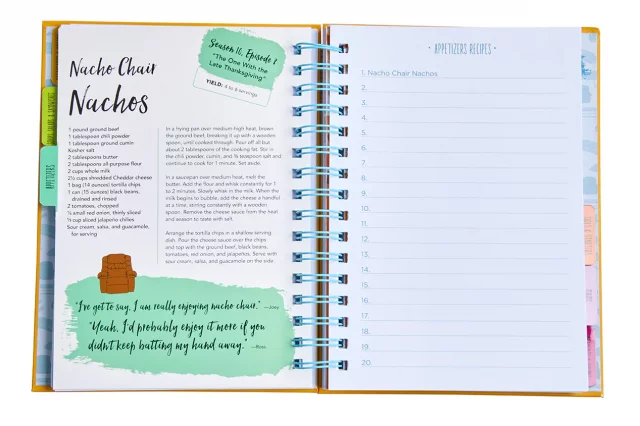 Nacho Chair
Nachos
Season 16, Episode 8
"The One With the
Late Thanksgiving"
YIELD: 4 to 6 servings
1 pound ground beef
1 tablespoon chili powder
1 tablespoon ground cumin
Kosher salt
2 tablespoons butter
2 tablespoons all-purpose flour
2 cups whole milk
2½ cups shredded Cheddar cheese
1 bag (14 ounces) tortilla chips
1 can (15 ounces) black beans,
drained and rinsed
2 tomatoes, chopped
½ small red onion, thinly sliced
¼ cup sliced jalapeño chilies
Sour cream, salsa, and guacamole,
for serving
In a frying pan over medium-high heat, brown
the ground beef, breaking it up with a wooden
spoon, until cooked through. Pour off all but
about 2 tablespoons of the cooking fat. Stir in
the chili powder, cumin, and ¾ teaspoon salt and
continue to cook for 1 minute. Set aside.
In a saucepan over medium heat, melt the
butter. Add the flour and whisk constantly for 1
to 2 minutes. Slowly whisk in the milk. When the
milk begins to bubble, add the cheese a handful
at a time, stirring constantly with a wooden
spoon. Remove the cheese sauce from the heat
and season to taste with salt.
Arrange the tortilla chips in a shallow serving
dish. Pour the cheese sauce over the chips
and top with the ground beef, black beans,
tomatoes, red onion, and jalapeños. Serve with
sour cream, salsa, and guacamole on the side.
"I've got to say, I am really enjoying nacho chair." —Joey
"Yeah, I'd probably enjoy it more if you
didn't keep batting my hand away." —Ross
APPETIZERS
• APPETIZERS RECIPES •
1. Nacho Chair Nachos
2.
3.
4.
5.
6.
7.
8.
9.
10.
11.
12.
13.
14.
15.
16.
17.
18.
19.
20.